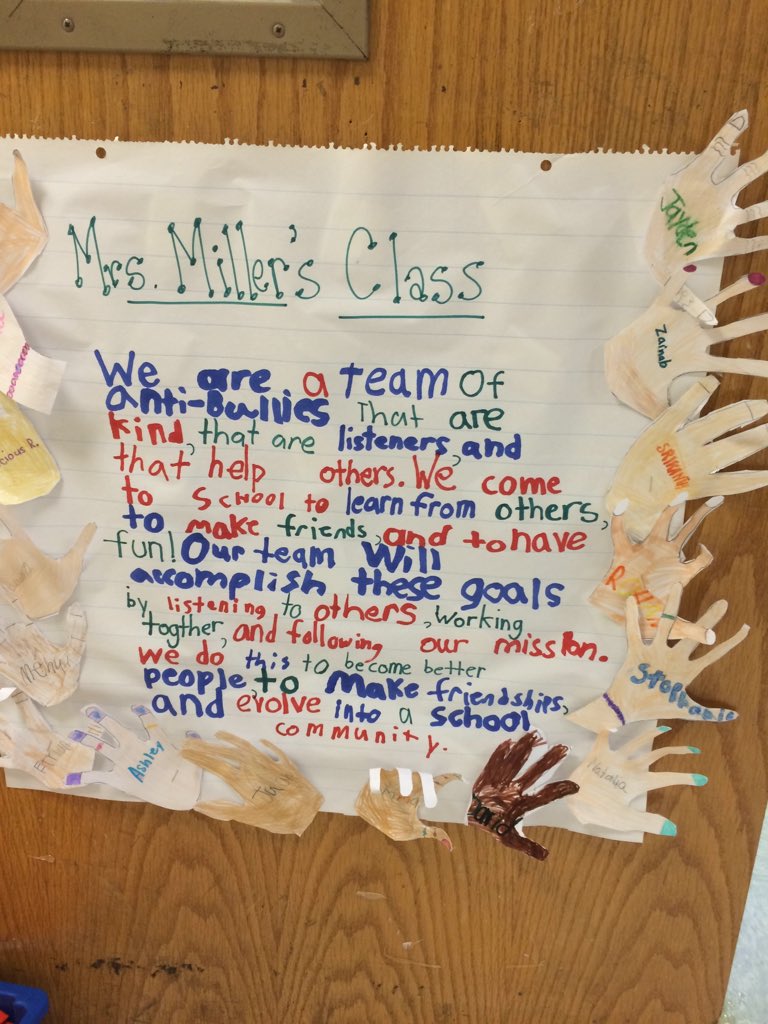 Mrs. Miller's Class
We are a team of
anti-Bullies That are
kind, that are listeners, and
that help others. We come
to School to learn from others,
to make friends, and to have
fun! Our team Will
accomplish these goals
by listening to others, working
togther, and following our mission.
we do this to become better
people, to make friendships,
and evolve into a school
community.
Jayden
Zainab
Stephanie
Natalia
Ashley